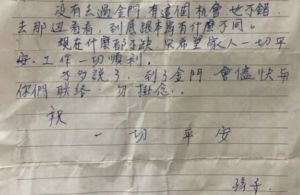 沒有去過金門有這個機會也不錯
去那邊看看,到底跟本島有什麼不同。
現在什麼都不缺只希望家人一切平
安,工作一切順利。
不多說了,到了金門會儘快與
你們聯絡,勿掛念..
祝
一切平安